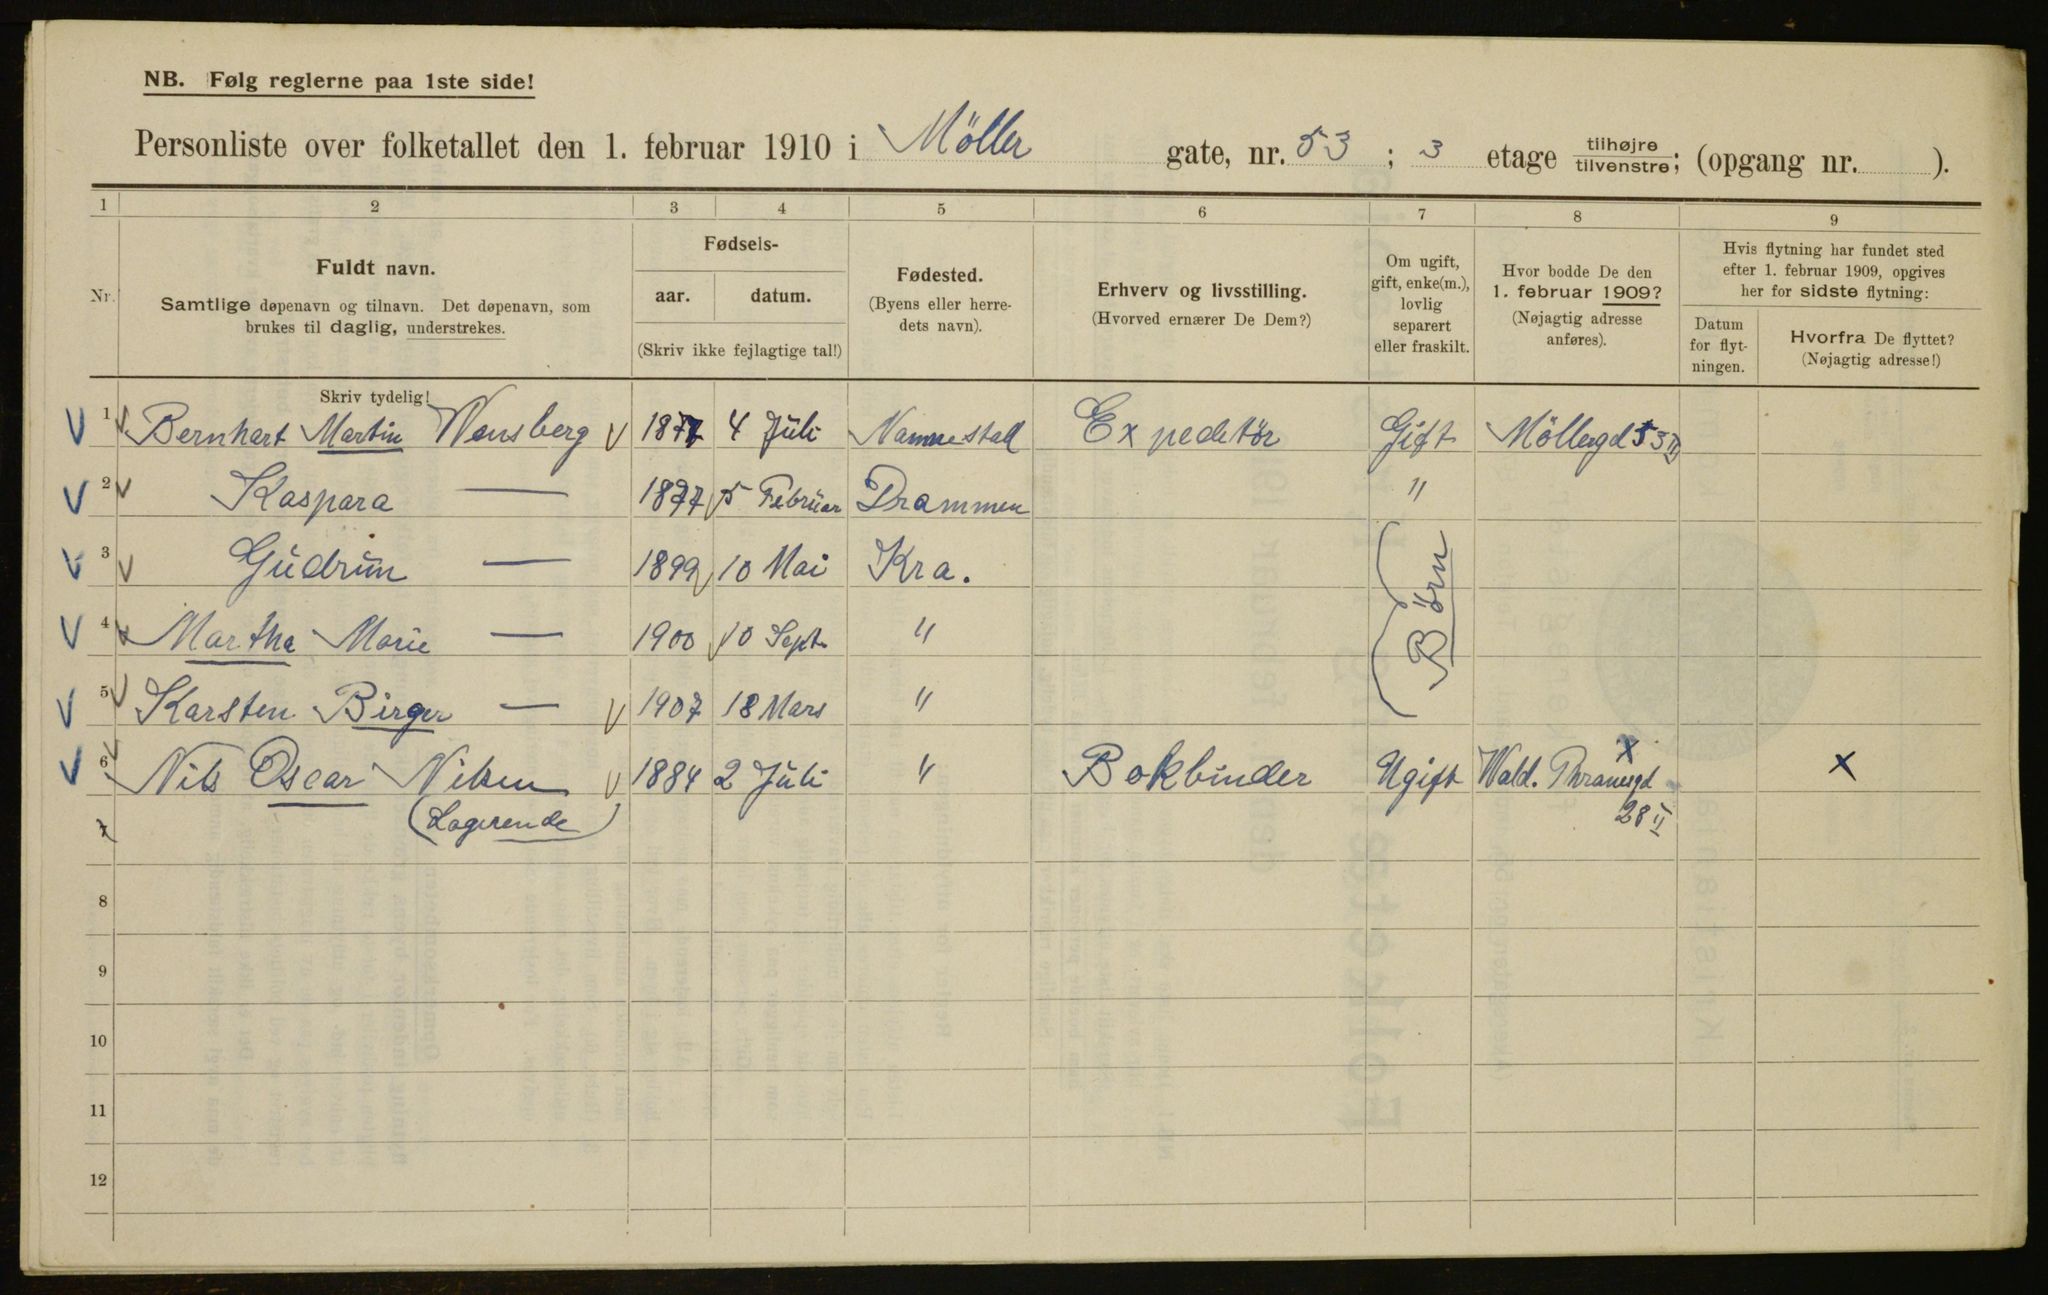 NB. Følg reglerne paa 1ste side!
Personliste over folketallet den 1. februar 1910 i Möller gate, nr. 53; 3 etage tilhøjre tilvenstre; (opgang nr. ).
1 2 3 4 5 6 7 8 9
Nr.
Fuldt navn.
Samtlige døpenavn og tilnavn. Det døpenavn, som
brukes til daglig, understrekes.
Fødsels-
aar. datum.
(Skriv ikke fejlagtige tal!)
Fødested.
(Byens eller herre-
dets navn).
Erhverv og livsstilling.
(Hvorved ernærer De Dem?)
Om ugift,
gift, enke(m.),
lovlig
separert
eller fraskilt.
Hvor bodde De den
1. februar 1909?
(Nøjagtig adresse
anføres).
Hvis flytning har fundet sted
efter 1. februar 1909, opgives
her for sidste flytning:
Datum
for flyt-
ningen.
Hvorfra De flyttet?
(Nøjagtig adresse!)
Skriv tydelig!
1 Bernhart Martin Wensberg 1877 4 Juli Expeditør Gift Möllergd 53 III
2 Kaspara — 1877 5 Februar Drammen "
3 Gudrun — 1899 10 Mai Kra.
Børn
4 Martha Marie — 1900 10 Sept "
5 Karsten Birger — 1907 18 Mars "
6 Nils Oscar Nilsen 1884 2 Juli " Bokbinder Ugift Wald. Thranesgd x x
7 (Logerende) 28 II
8
9
10
11
12